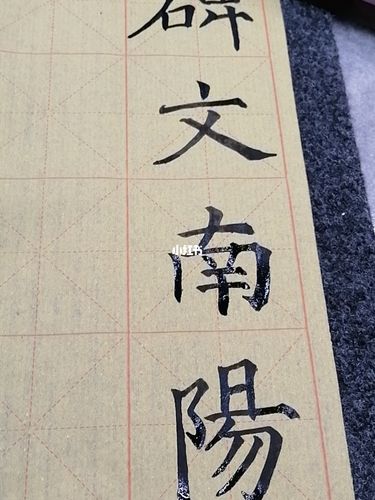 碑文南陽
小红书